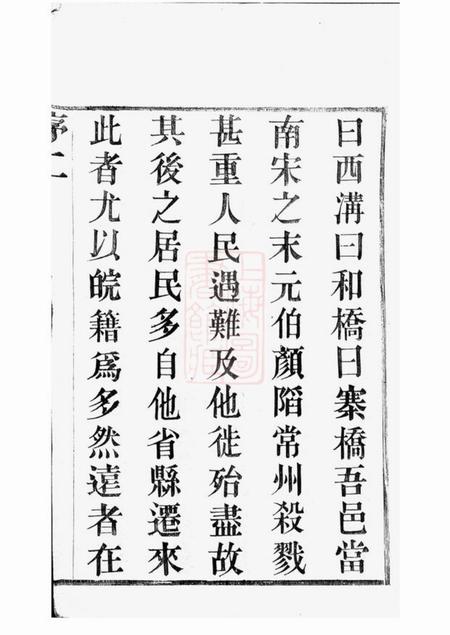 曰西溝曰和橋曰寨橋吾邑當
南宋之末元伯顏䧟常州殺戮
甚重人民遇難及他徙殆盡故
其後之居民多自他省縣遷來
此者尤以皖籍爲多然遠者在
序二